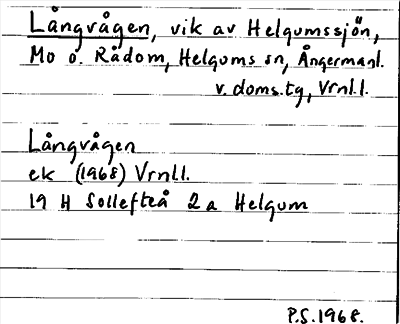 Långvågen, vik av Helgumssjön,
Mo o. Rådom, Helgums sn, Ångermanl.
v. doms.tg, Vrnl.l.
Långvågen
ek (1968) Vrnl.l.
19 H Sollefteå 2a Helgum
P.S.1968.